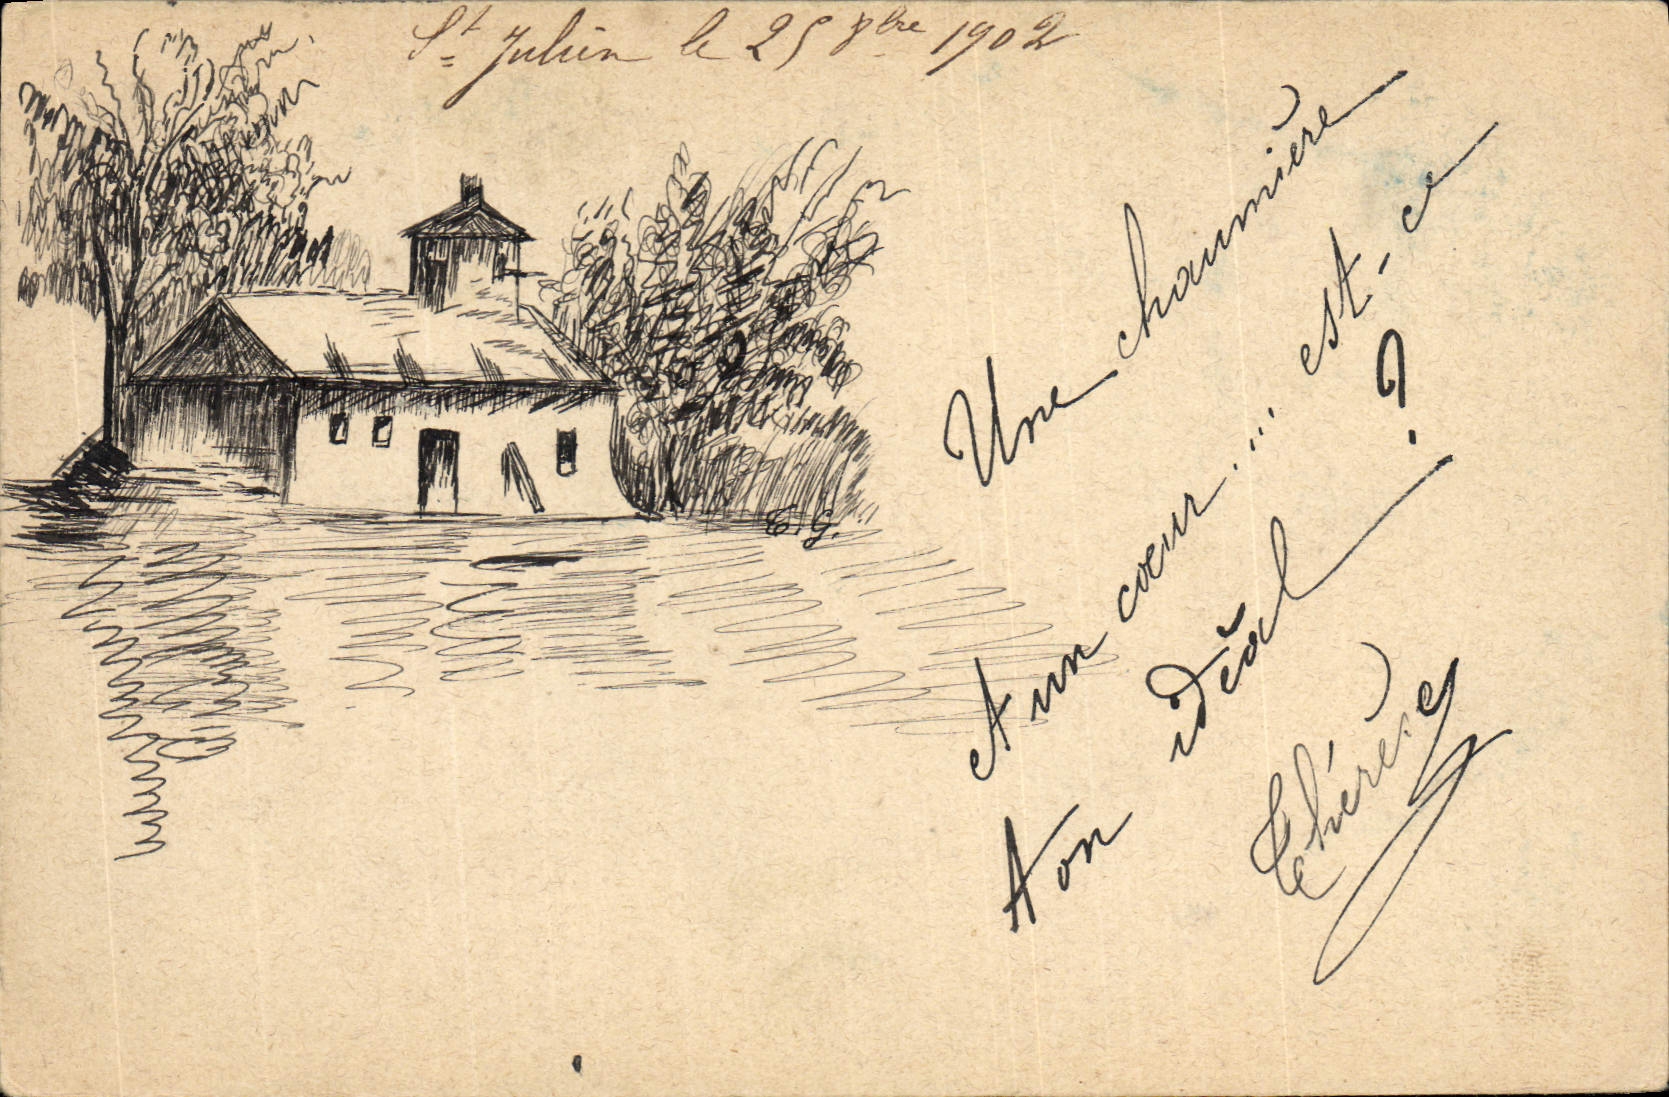 St Julien le 25 8bre 1902
Une chaumière
A un cœur.... est-ce
ton idéal ?
Thérèse
E. G.